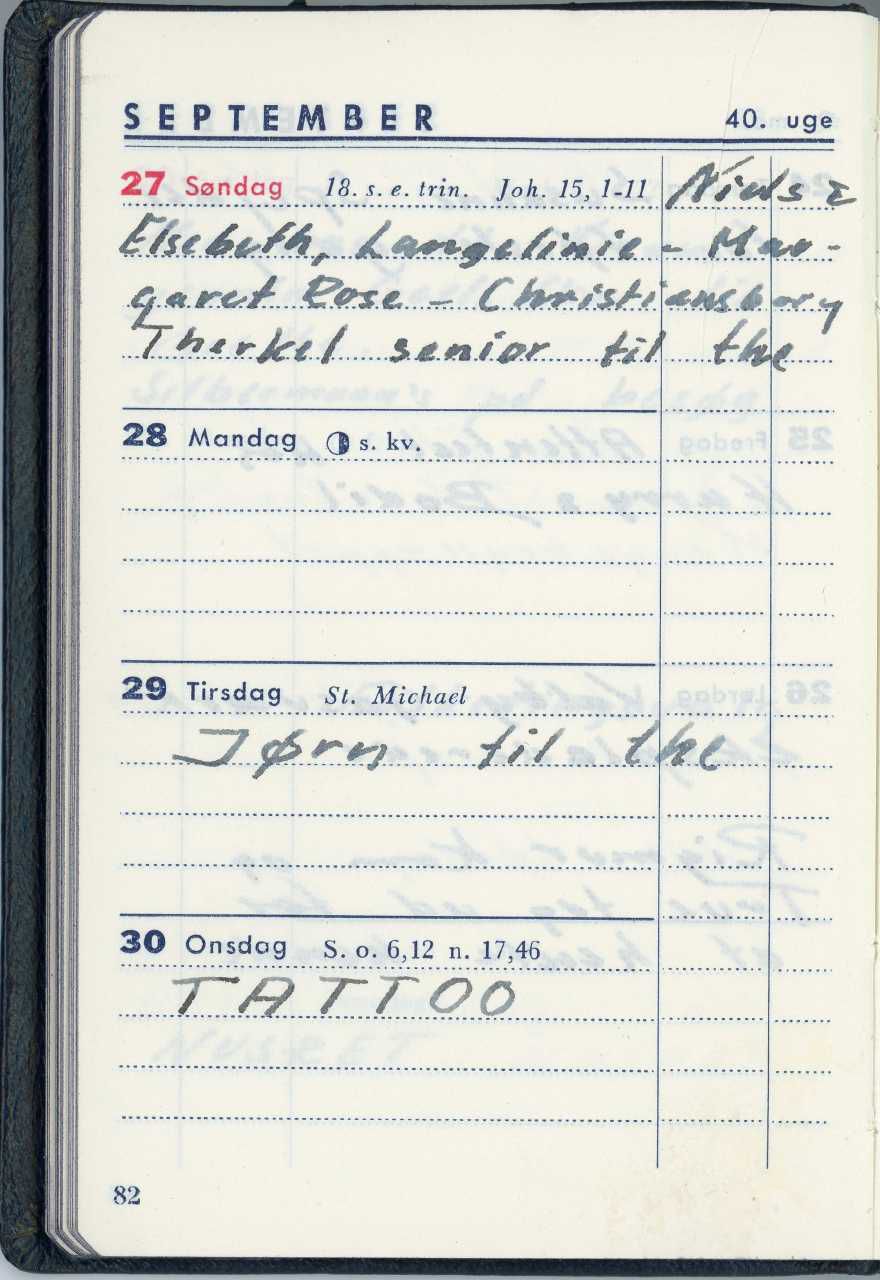 SEPTEMBER 40. uge
27 Søndag 18. s. e. trin. Joh. 15, 1-11 Niels &
Elsebeth, Langelinie - Mar-
garet Rose - Christiansborg
Therkel senior til the
28 Mandag s. kv.
29 Tirsdag St. Michael
Jørn til the
30 Onsdag S. o. 6,12 n. 17,46
TATTOO
82